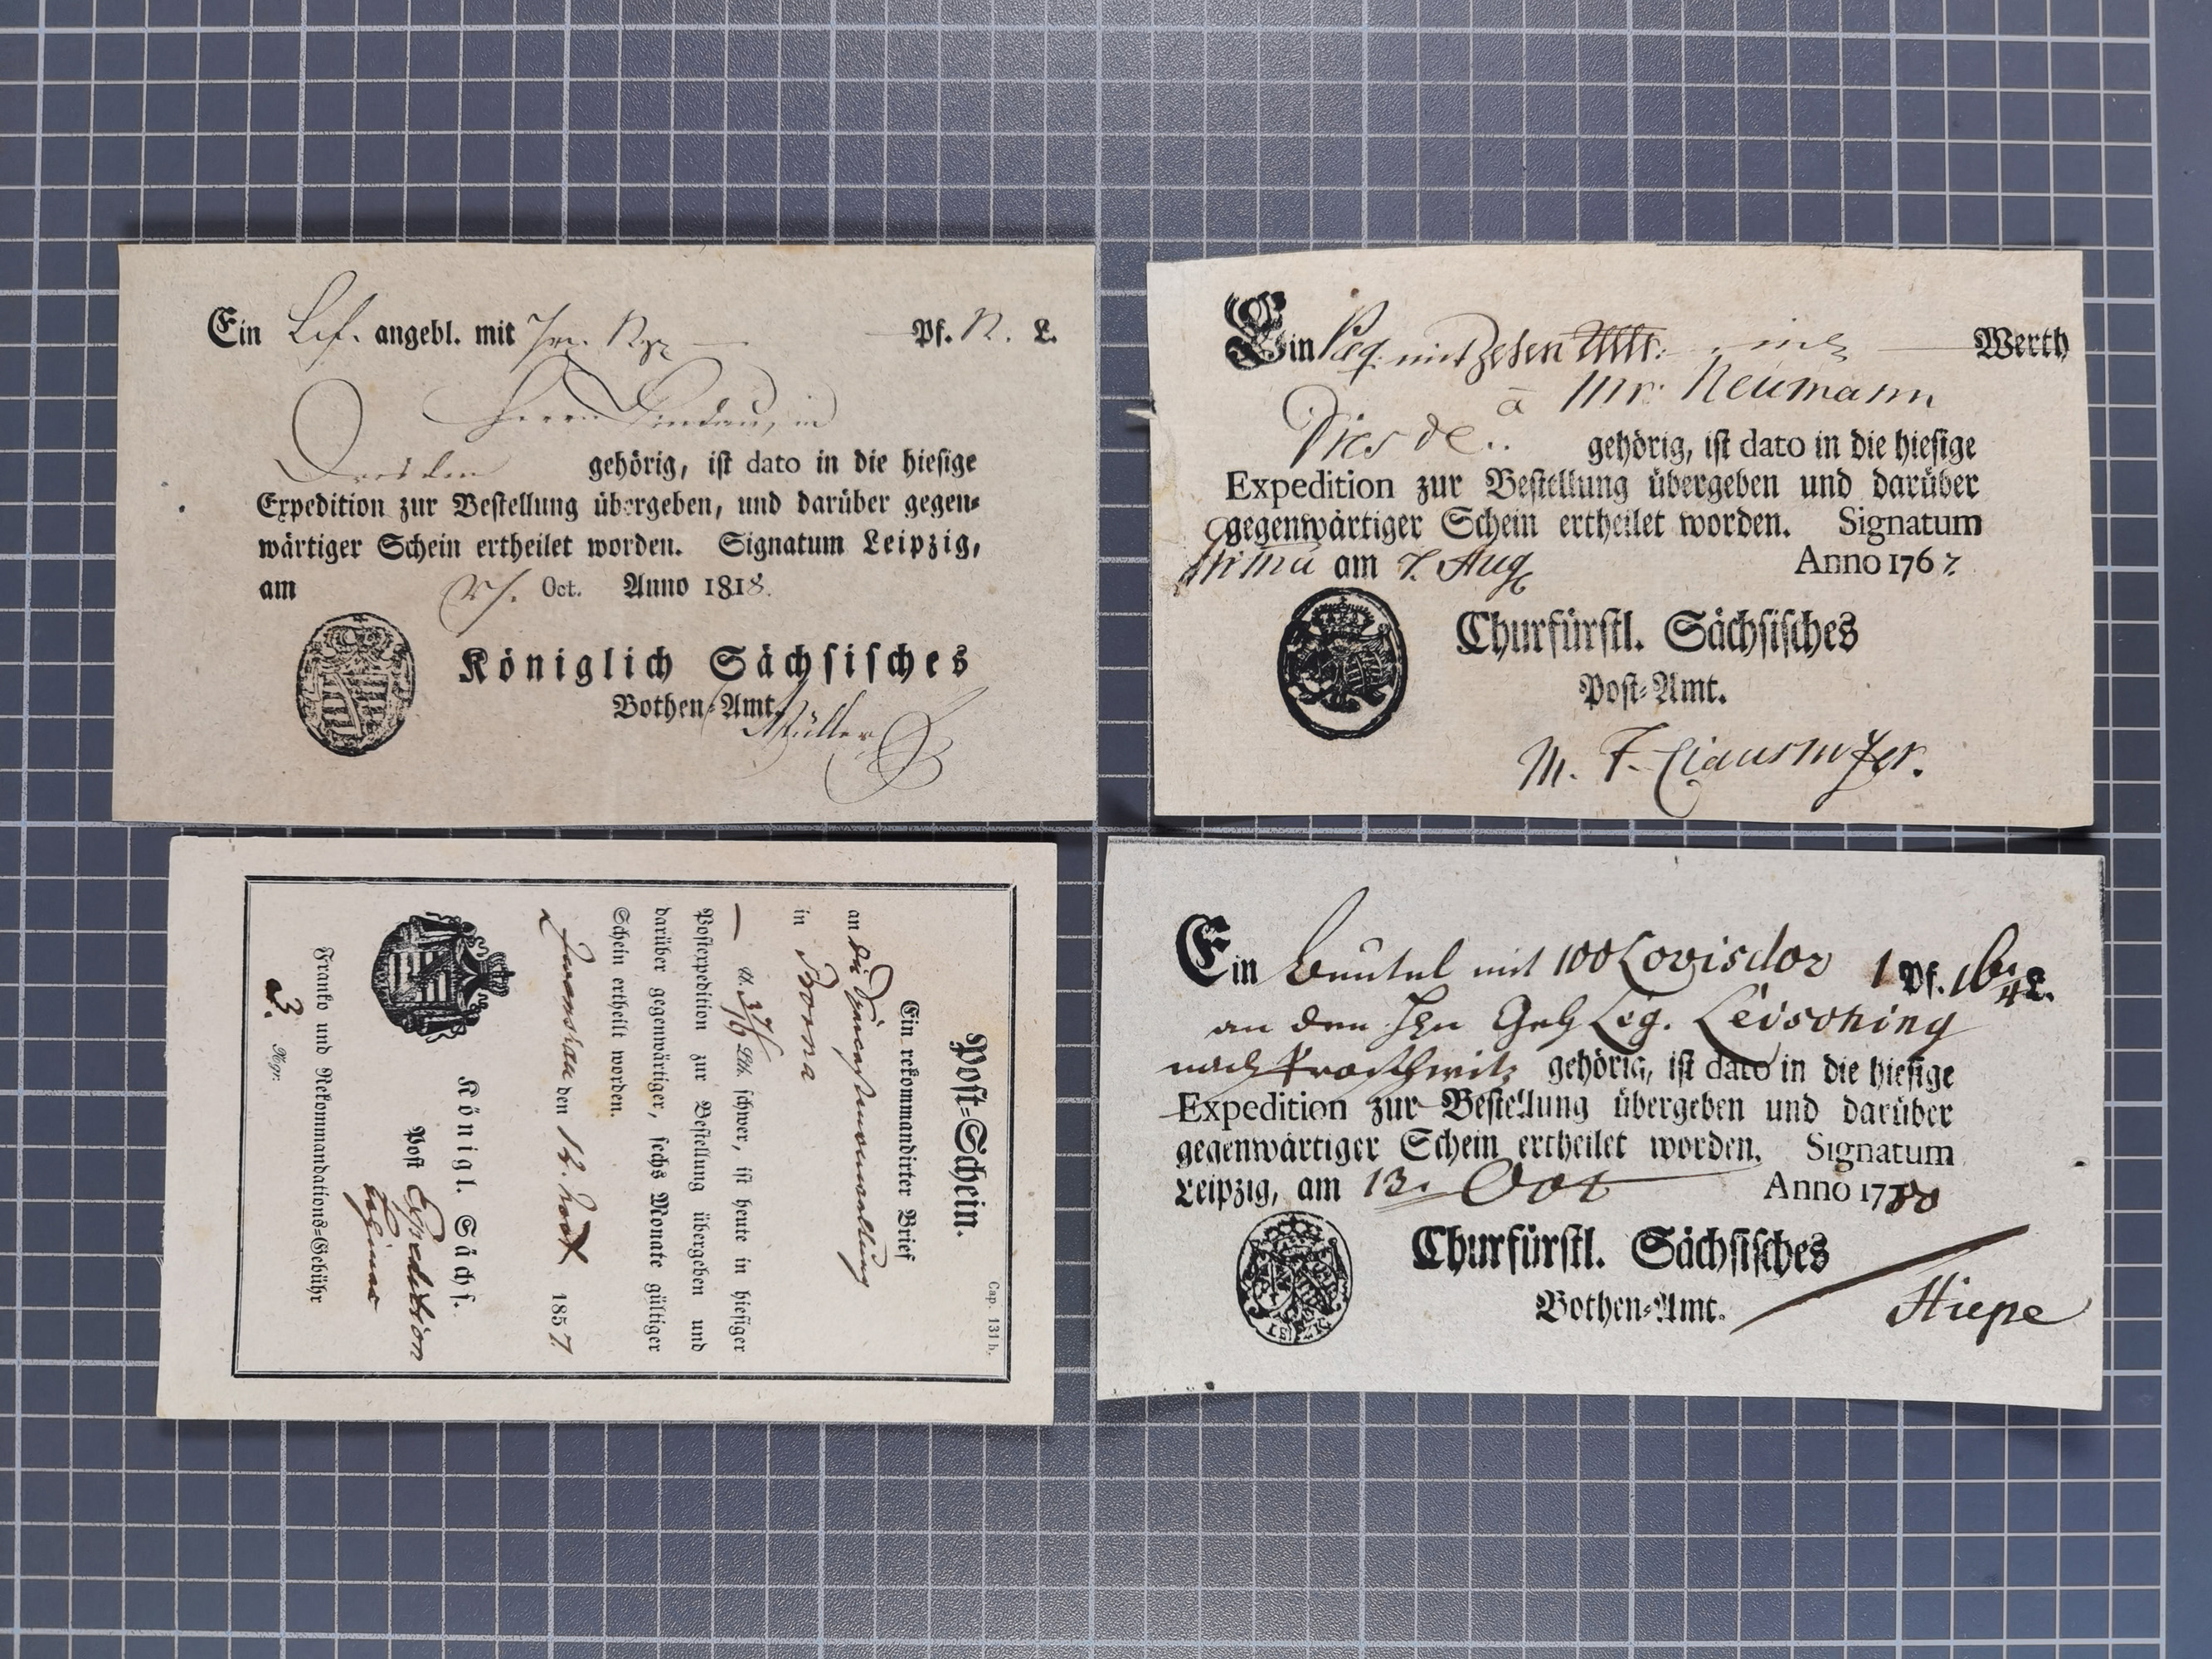 Ein angebl. mit Pf. L.
Herrn Lindau, in
Dresden gehörig, ist dato in die hiesige
Expedition zur Bestellung übergeben, und darüber gegen-
wärtiger Schein ertheilet worden. Signatum Leipzig,
am Oct. Anno 1818.
Königlich Sächsisches
Bothen-Amt.
Müller
Ein Paq. mit Zehen Werth
à Mr. Neumann
gehörig, ist dato in die hiesige
Expedition zur Bestellung übergeben und darüber
gegenwärtiger Schein ertheilet worden. Signatum
am 7. Aug Anno 1767.
Churfürstl. Sächsisches
Post-Amt.
Cap. 131 b.
Post-Schein.
Ein rekommandirter Brief
an die
in Borna
— U. Lth. schwer, ist heute in hiesiger
Postexpedition zur Bestellung übergeben und
darüber gegenwärtiger, sechs Monate gültiger
Schein ertheilt worden.
den 1857
Königl. Sächs.
Post Expedition
Franko und Rekommandations-Gebühr
3. Ngr.
Ein Beutel mit 100 Lovisdor 1 Pf. L.
an den Leg. Leisching
nach gehörig, ist dato in die hiesige
Expedition zur Bestellung übergeben und darüber
gegenwärtiger Schein ertheilet worden. Signatum
Leipzig, am 13. Oct Anno 1780
Churfürstl. Sächsisches
Bothen-Amt.
LEIPZIG